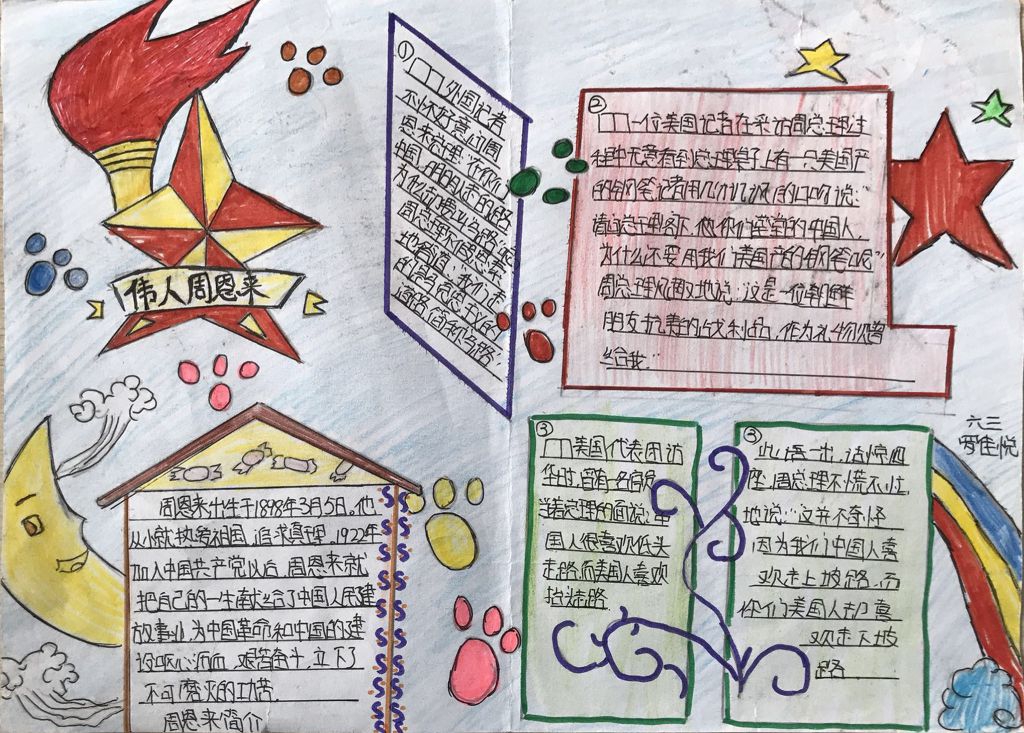 伟人周恩来
①外国记者
不怀好意问周
恩来总理：“在你们
中国，明明是人走的路
为什么却要叫马路？”
周总理不假思索
地答道：“我们走
的是马克思主义的
道路，简称马路”。
②一位美国记者在采访周总理过
程中无意看到总理桌子上有一只美国产
的钢笔记者用几分讥讽的口吻说：“
请问总理阁下，你们堂堂的中国人，
为什么还要用我们美国产的钢笔呢？”
周总理风趣地说：“这是一位朝鲜
朋友抗美的战利品，作为礼物赠
给我。”
③美国代表团访
华时，曾有一名官员
当着总理的面说：“中
国人很喜欢低头
走路，而美国人喜欢
抬头走路。
③此话一出，话惊四
座，周总理不慌不忙，
地说：“这并不奇怪
因为我们中国人喜
欢走上坡路，而
你们美国人却喜
欢走下坡
路
周恩来出生于1898年3月5日，他
从小就执爱祖国，追求真理，1922年
加入中国共产党以后，周恩来就
把自己的一生献给了中国人民建
放事业，为中国革命和中国的建
设呕心沥血，艰苦奋斗，立下了
不可磨灭的功劳
周恩来简介
六三
罗佳悦